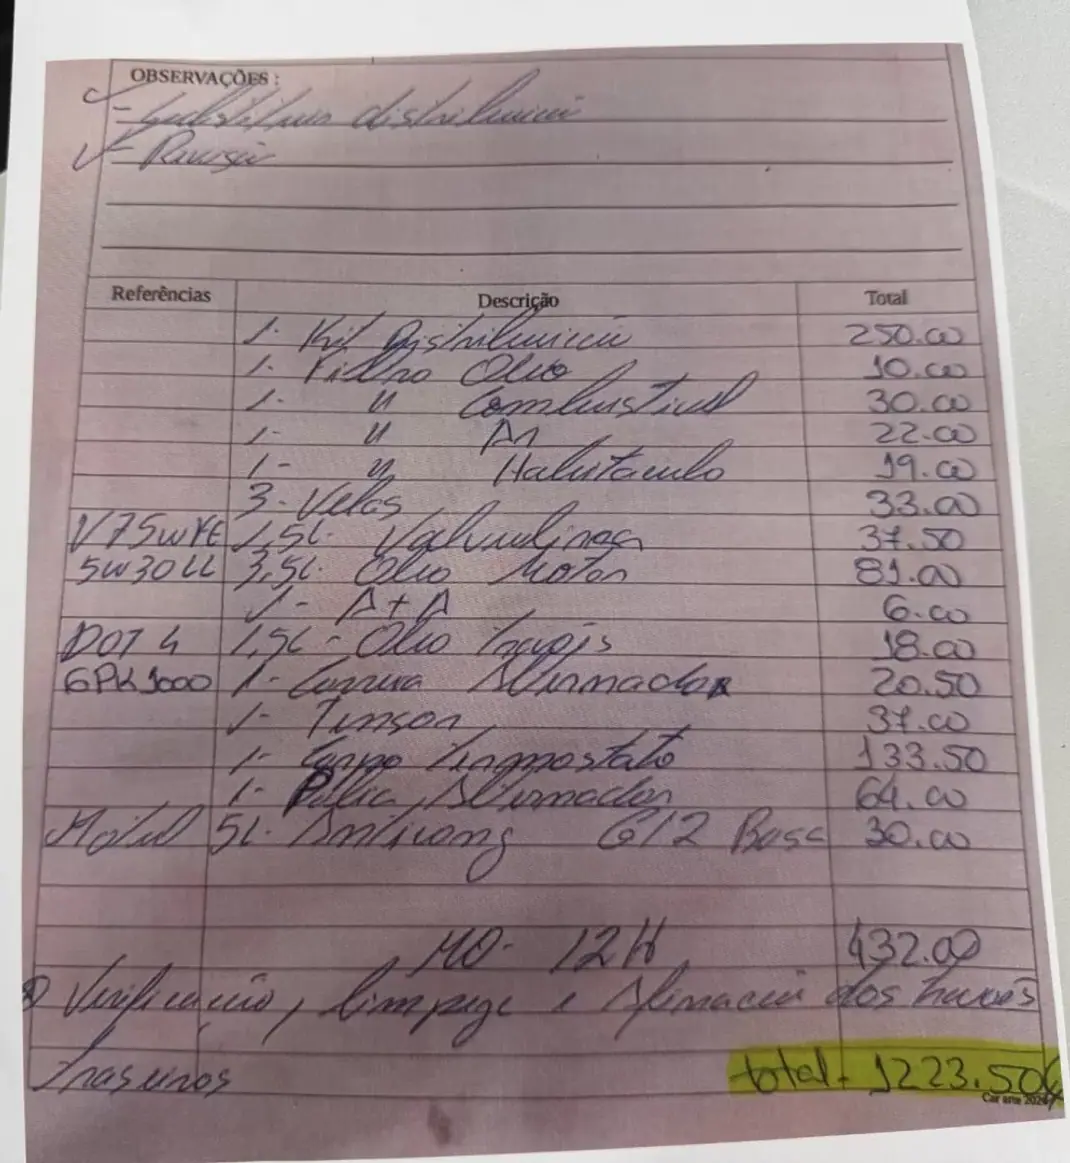 OBSERVAÇÕES :
- Substituir distribuição
- Revisão
Referências Descrição Total
1- Kit Distribuição 250.00
1- Filtro Oleo 10.00
1- " Combustivel 30.00
1- " Ar 22.00
1- " Habitaculo 19.00
3- Velas 33.00
V75WFE 1,5L- Valvulinea 37.50
5W30LL 3,5L- Oleo Motor 81.00
1- A+A 6.00
DOT 4 1,5L- Oleo travões 18.00
6PK1000 1- Correia Alternador 20.50
1- Tensor 37.00
1- Corpo Termostato 133.50
1- Polia Alternador 64.00
Motul 5L- Anticong G12 Basc 30.00
MO- 12H 432.00
Verificação, limpeza e Afinação dos travões
traseiros total- 1223.50€